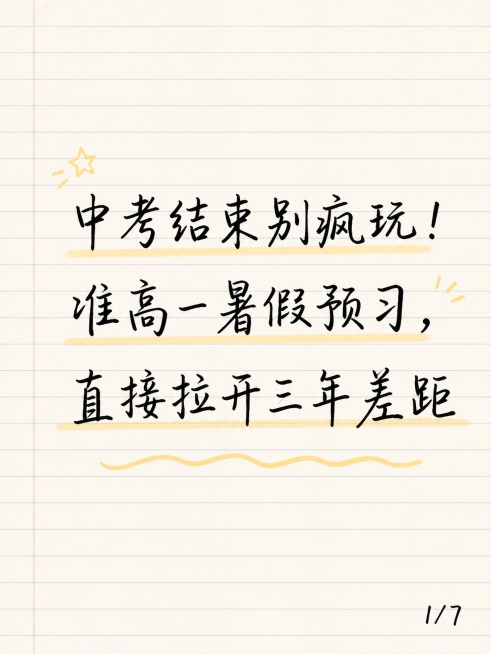 中考结束别疯玩!
准高一暑假预习,
直接拉开三年差距
1/7